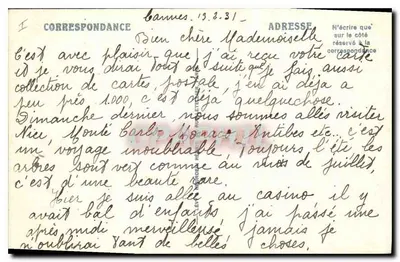 I
Cannes, 13.2.31
CORRESPONDANCE
ADRESSE
N'écrire que
sur le côté
réservé à la
correspondance
Bien chère Mademoiselle
C'est avec plaisir que j'ai reçu votre carte
et je vous dirai tout de suite que je fais aussi
collection de cartes postale, j'en ai déja a
peu près 1.000, c'est déja quelquechose.
Dimanche dernier nous sommes allés visiter
Nice, Monté Carlo Monaco Antibes etc.. c'est
un voyage inoubliable, toujours l'été les
arbres sont vert comme au mois de juillet,
c'est d'une beauté rare.
Hier je suis allée au casino il y
avait bal d'enfants j'ai passé une
après midi merveilleuse jamais je
n'oublirai tant de belles choses.